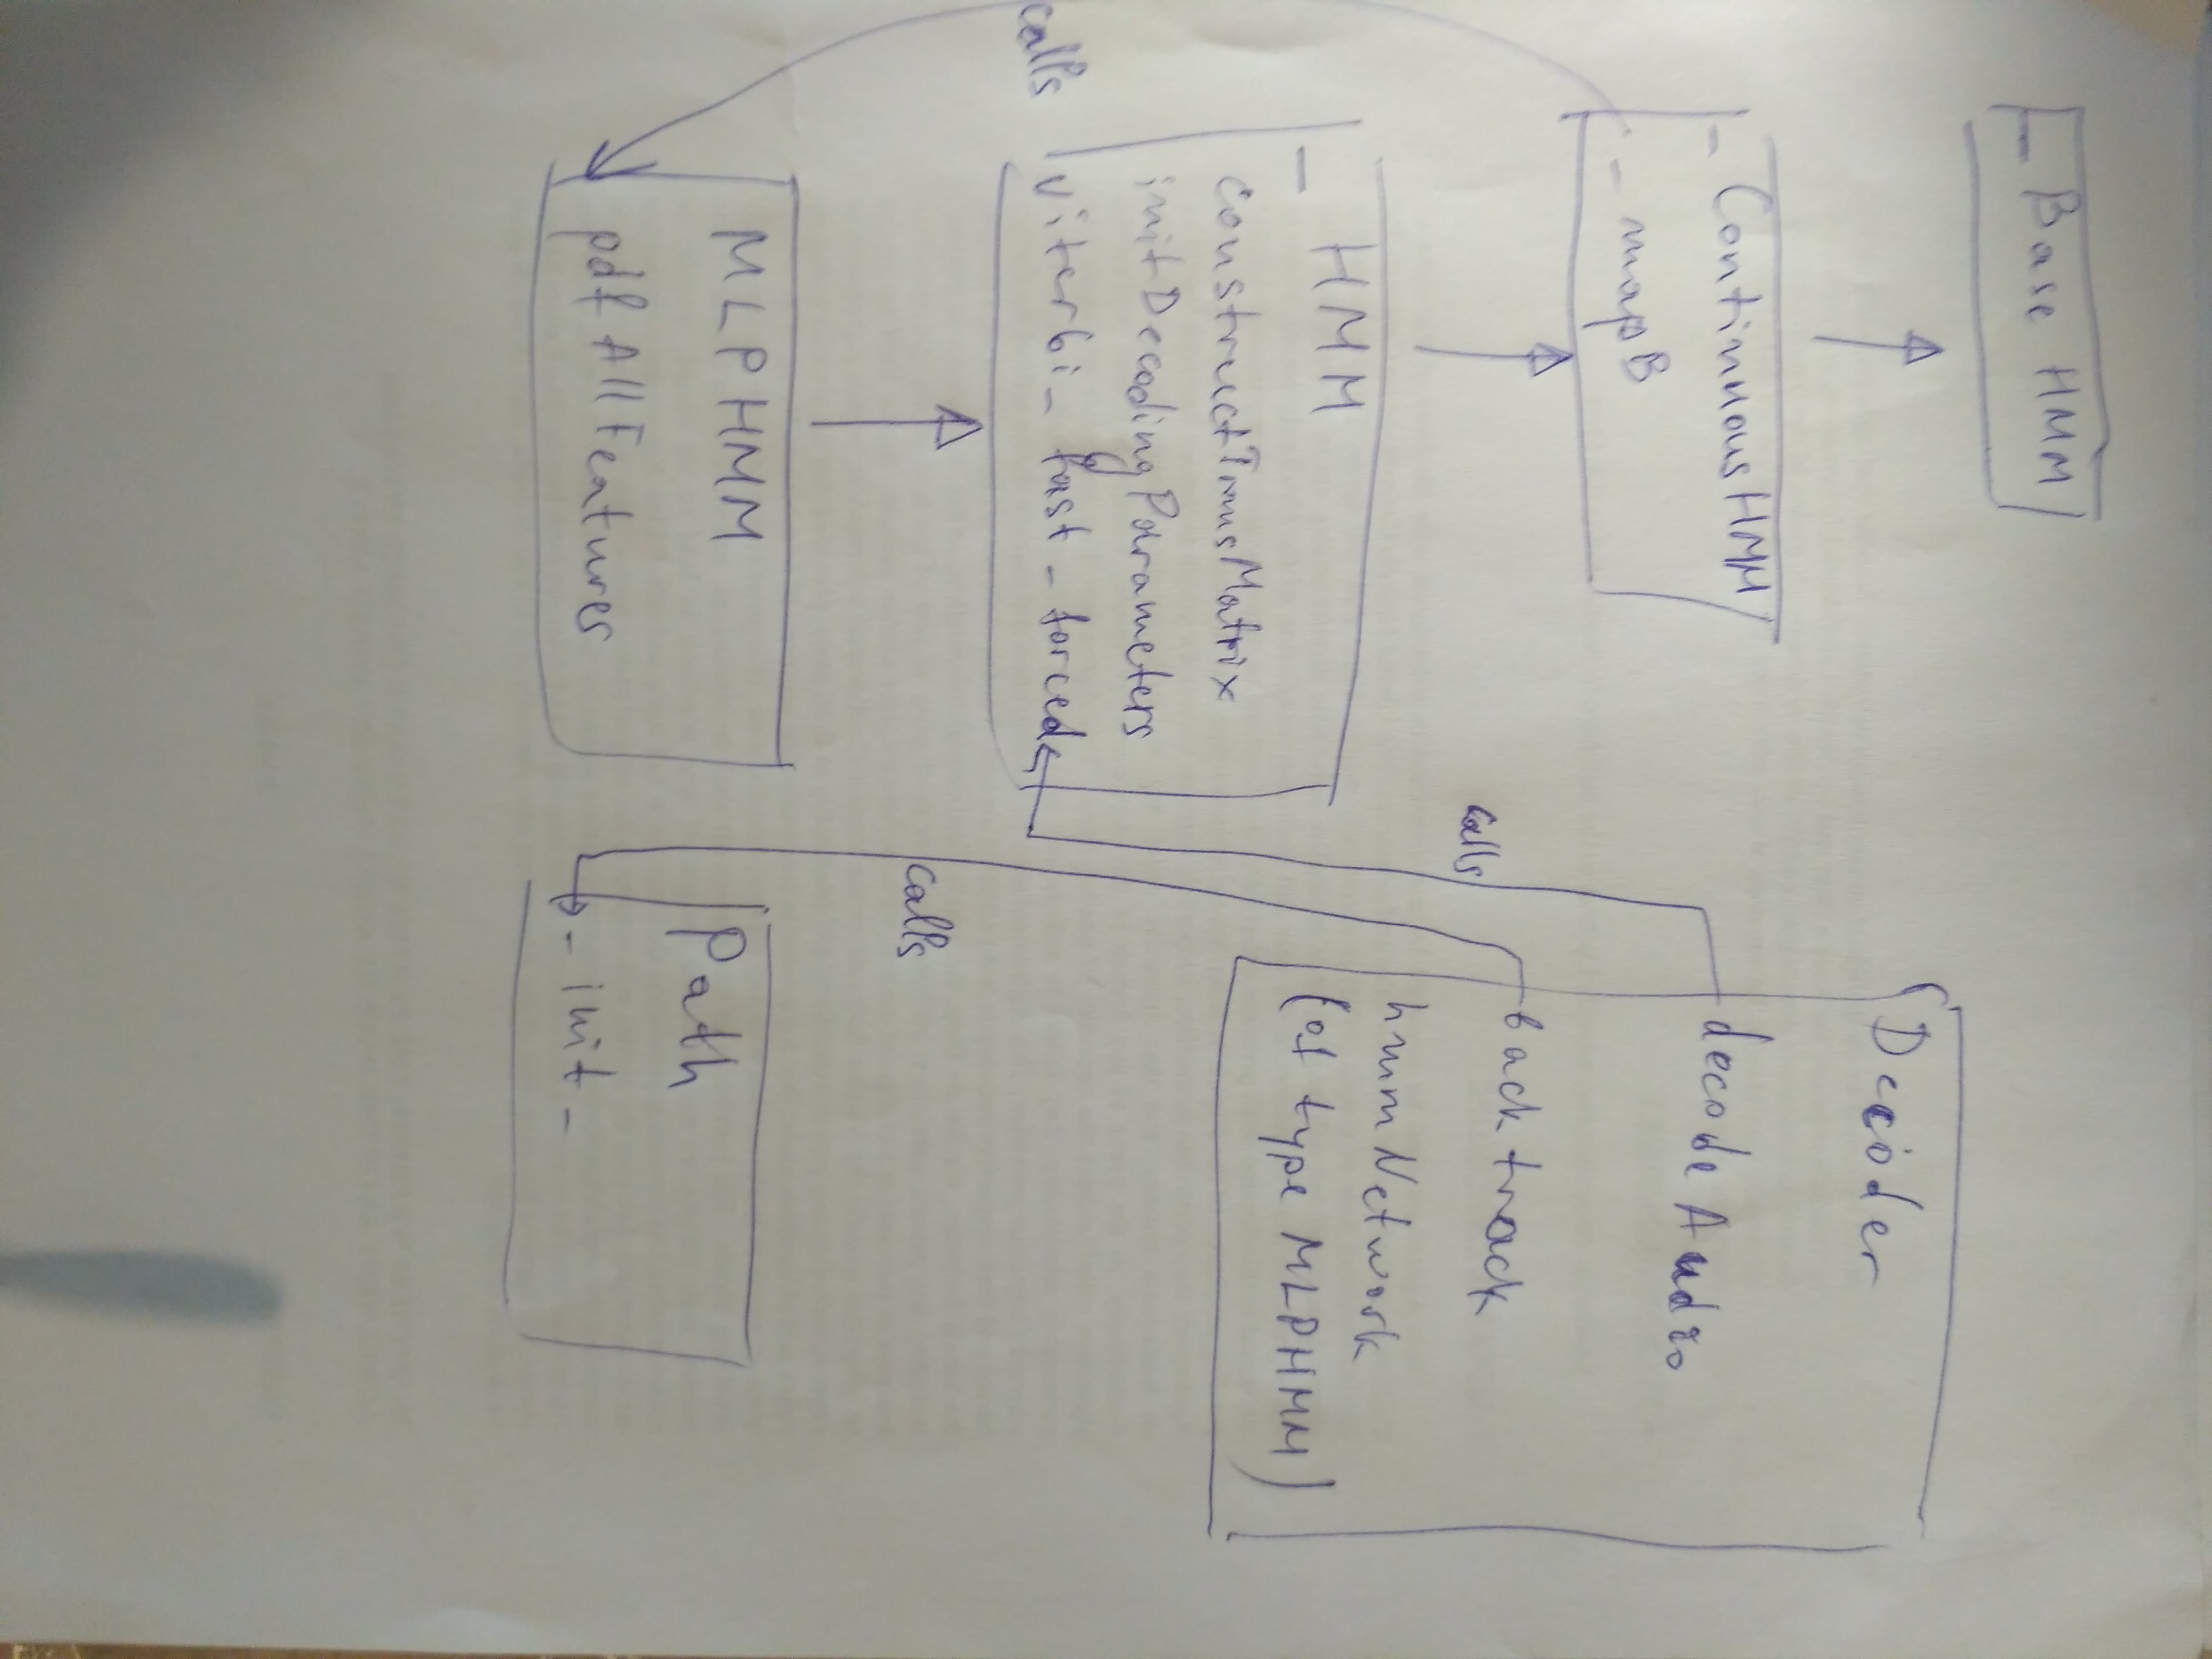 - Base HMM
- Continuous HMM
- mapB
- HMM
constructTransMatrix
initDecodingParameters
viterbi_fast_forced
MLPHMM
pdfAllFeatures
calls
Decoder
decodeAudio
backtrack
hmmNetwork
(of type MLPHMM)
calls
calls
Path
- init -